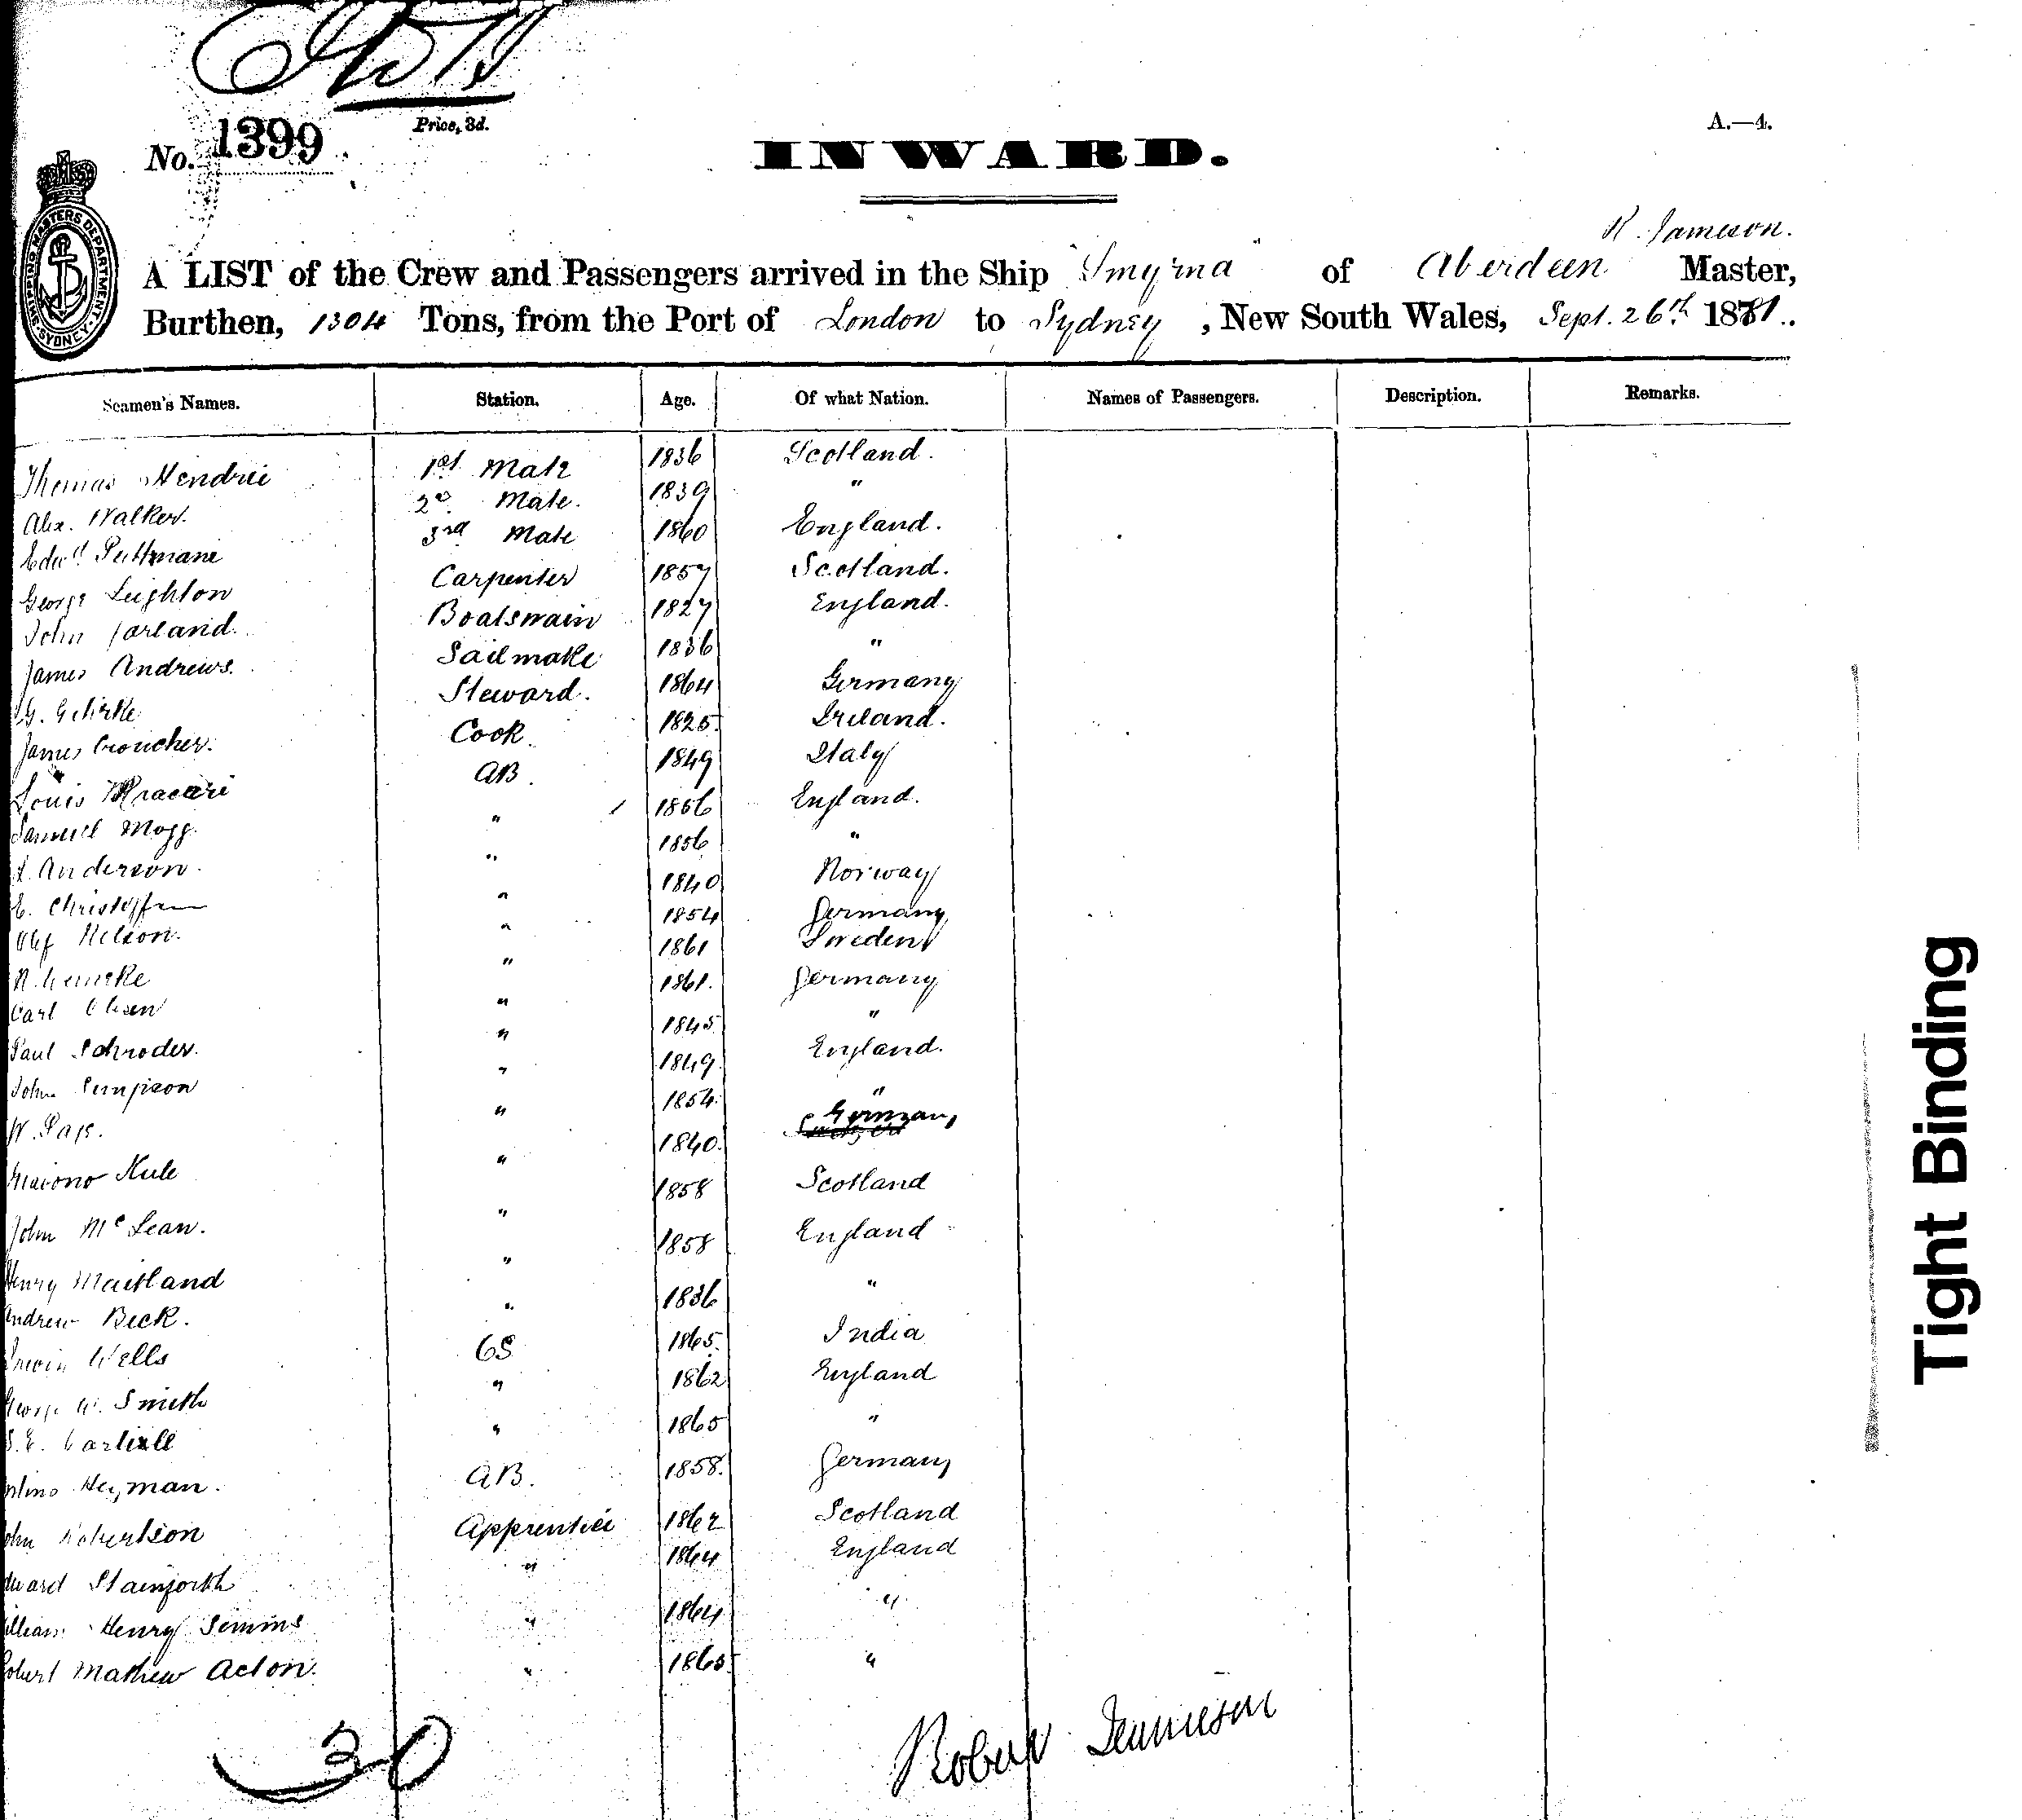 Price, 3d.
No. 1399
A.—4.
INWARD.
SHIPPING MASTERS DEPARTMENT. SYDNEY.
R. Jameson.
A LIST of the Crew and Passengers arrived in the Ship "Smyrna" of Aberdeen Master,
Burthen, 1304 Tons, from the Port of London to Sydney, New South Wales, Sept. 26th 1881.
Seamen's Names. Station. Age. Of what Nation. Names of Passengers. Description. Remarks.
Thomas Hendrie 1st Mate 1836 Scotland.
Alex. Walker. 2d Mate. 1839 "
Edwd 3rd Mate 1860 England.
George Leighton Carpenter 1857 Scotland.
John Boatswain 1827 England.
James Andrews. Sailmaker 1836 "
G. Steward. 1864 Germany
James Croucher. Cook. 1825. Ireland.
Louis AB. 1849 Italy
Samuel Mogg. " 1856 England.
Anderson. " 1856 "
" 1840 Norway
Olef Nelson. " 1854 Germany
" 1861 Sweden
Carl Olsen " 1861. Germany
Paul Schroder. " 1845. "
John Simpson " 1849. England.
W. Page. " 1854. "
" 1840. Germany
John McLean. " 1858 Scotland
Henry Maitland " 1858 England
Andrew Beck. " 1836 "
Wells OS 1865. India
George W. Smith " 1862 England
" 1865 "
Heyman. AB. 1858. Germany
John Robertson Apprentice 1862 Scotland
Edward Stainforth " 1864 England
William Henry Simms " 1864 "
Robert Mathew Acton. " 1865 "
30
Robert Jamieson
Tight Binding